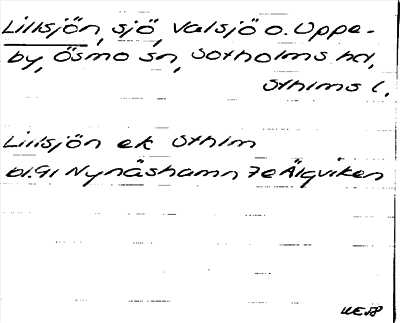 Lillsjön, sjö, Valsjö o. Uppe-
by, Ösmo sn, Sotholms hd,
Sthlms l.
Lillsjön ek Sthlm
bl.91 Nynäshamn 7e Älgviken